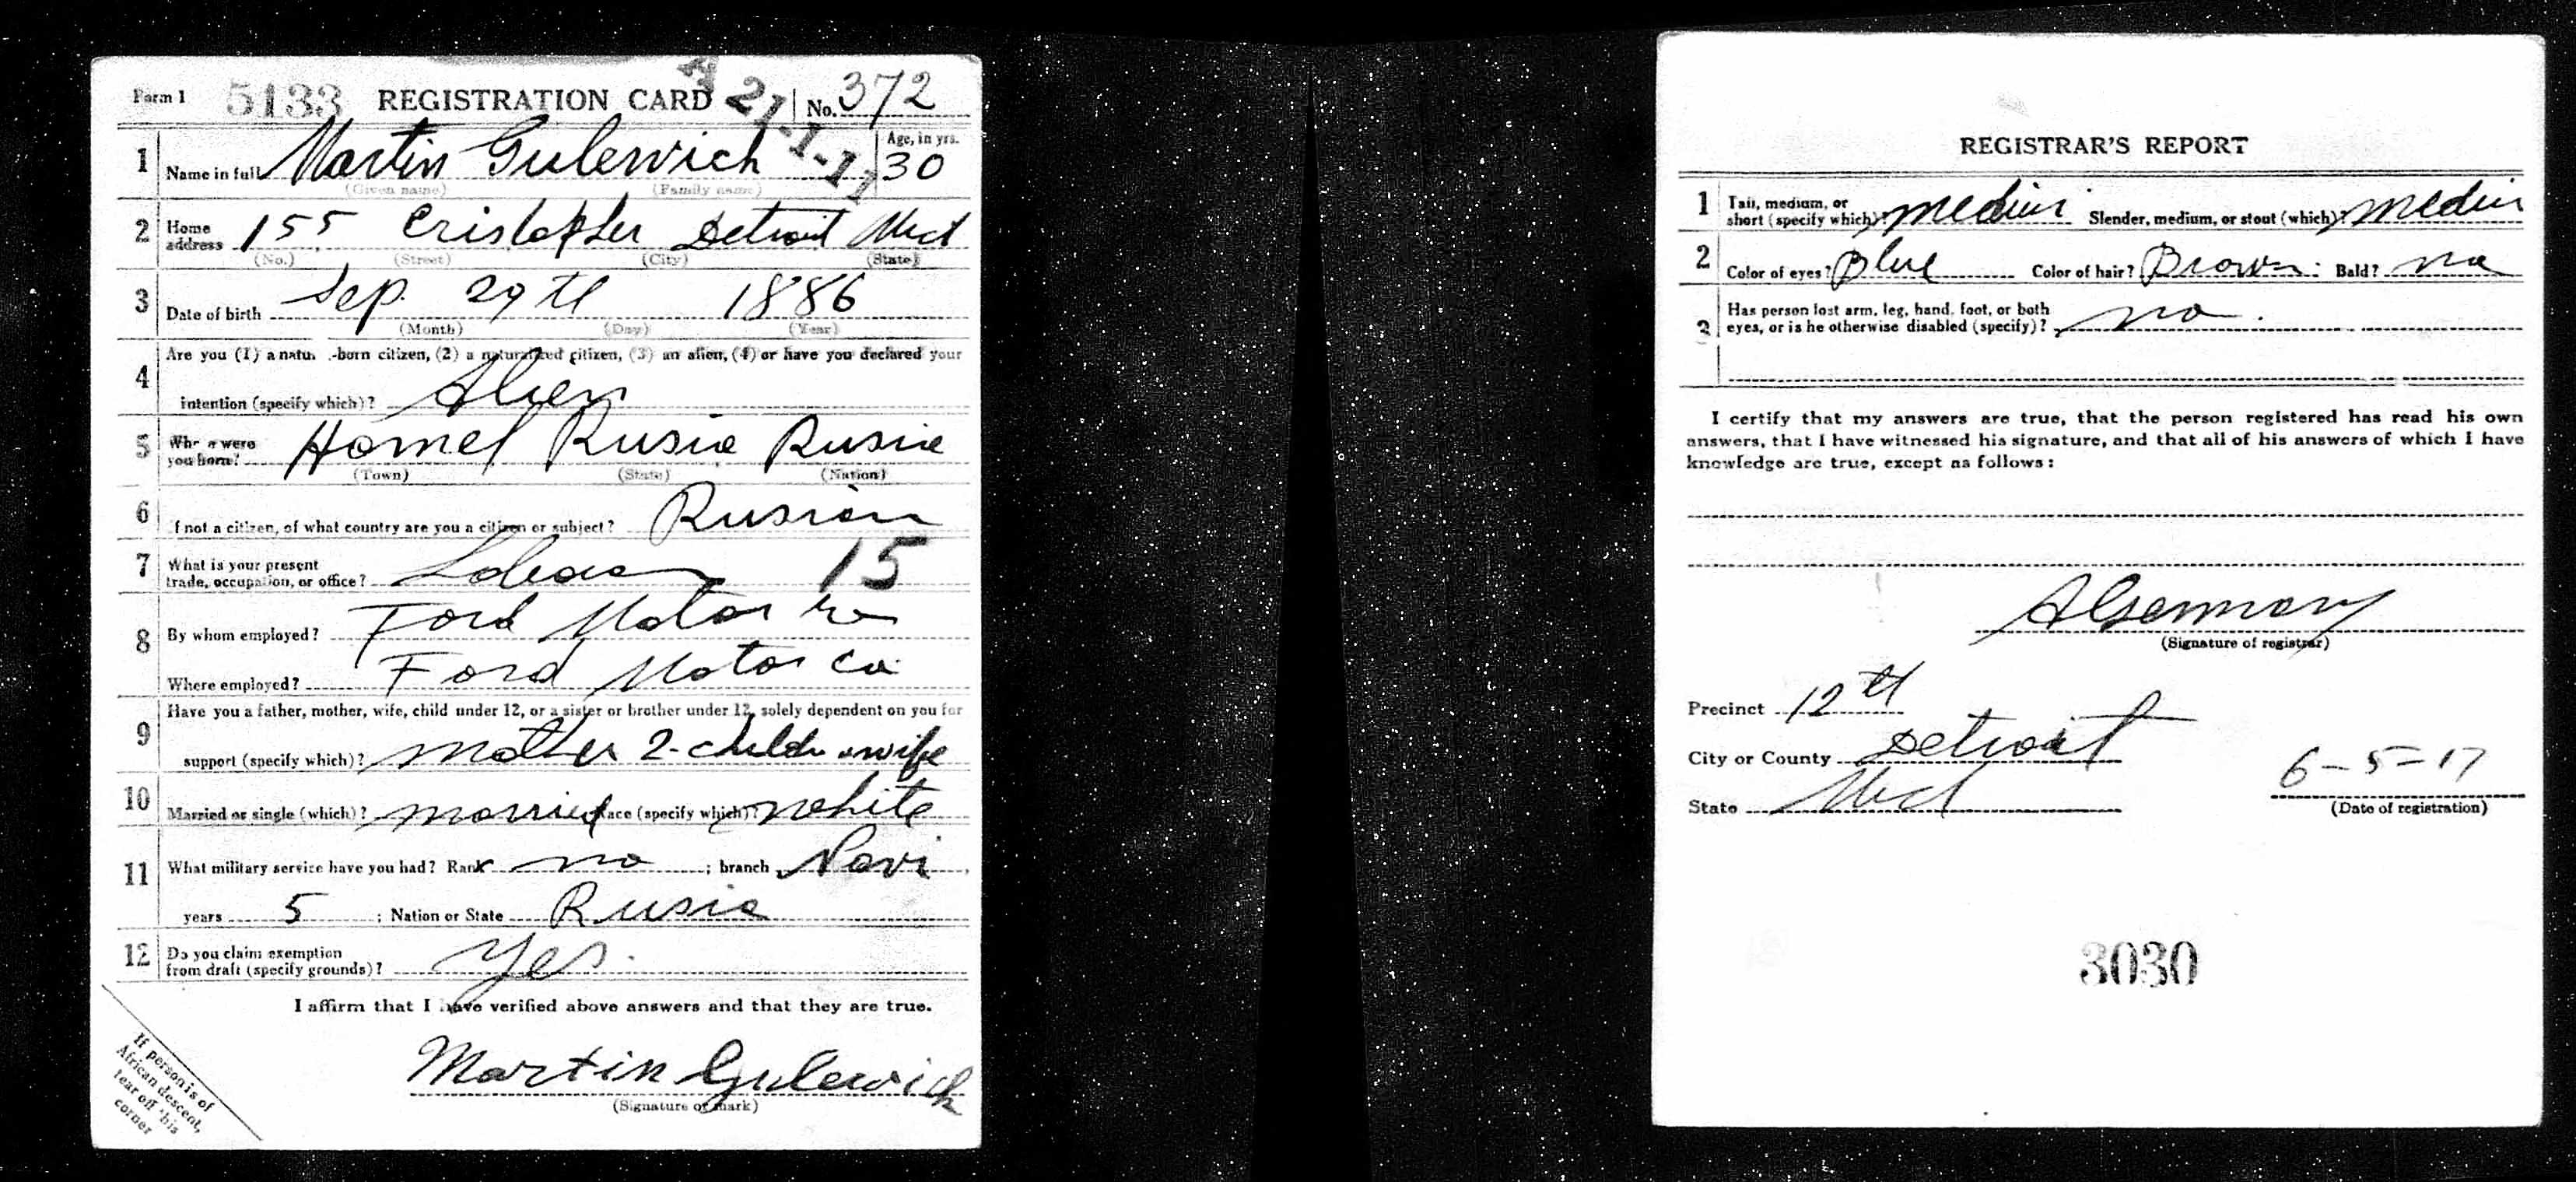 Form 1 5133 REGISTRATION CARD No. 372
21-1-17
1 Name in full Martin Gulewich Age, in yrs. 30
(Given name) (Family name)
2 Home address 155 Cristopher Detroit Mich
(No.) (Street) (City) (State)
3 Date of birth Sep. 29 th 1886
(Month) (Day) (Year)
Are you (1) a natu -born citizen, (2) a naturalized citizen, (3) an alien, (4) or have you declared your
4 intention (specify which)? Alien
5 Where were you born? Homel Rusia Rusia
(Town) (State) (Nation)
6 If not a citizen, of what country are you a citizen or subject? Rusion
7 What is your present
trade, occupation, or office? 15
8 By whom employed? Ford Motor co
Where employed? Ford Motor co
9 Have you a father, mother, wife, child under 12, or a sister or brother under 12, solely dependent on you for
support (specify which)? mother 2-child wife
10 Married or single (which)? married Race (specify which)? white
11 What military service have you had? Rank no ; branch Navi
years 5 ; Nation or State Rusia
12 Do you claim exemption
from draft (specify grounds)? Yes.
I affirm that I have verified above answers and that they are true.
Martin Gulewich
(Signature or mark)
If person is of
African descent,
tear off this
corner
REGISTRAR'S REPORT
1 Tall, medium, or
short (specify which)? medium Slender, medium, or stout (which)? medium
2 Color of eyes? Blue Color of hair? Brown Bald? no
3 Has person lost arm, leg, hand, foot, or both
eyes, or is he otherwise disabled (specify)? no.
I certify that my answers are true, that the person registered has read his own
answers, that I have witnessed his signature, and that all of his answers of which I have
knowledge are true, except as follows:
(Signature of registrar)
Precinct 12th
City or County Detroit
State Mich
6-5-17
(Date of registration)
3030